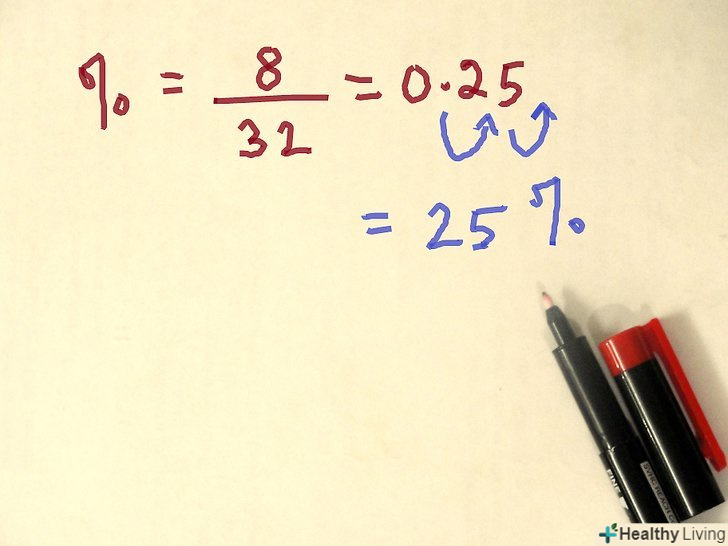 % = 8/32 = 0.25
= 25 %
FINE
+Healthy Living